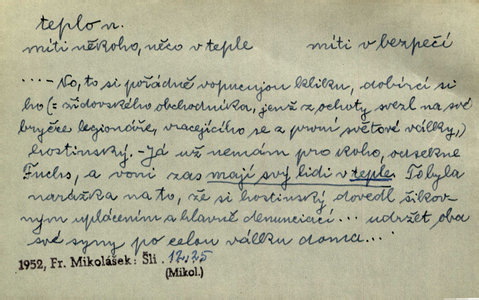 teplo n.
míti někoho, něco v teple míti v bezpečí
...- No, to si pořádně vopucujou kliku, dobírá si
ho (= židovského obchodníka, jenž z ochoty svezl na své
bryčce legionáře, vracejícího se z první světové války,)
hostinský. - Já už nemám pro koho, odsekne
Fuchs, a voni zas mají svý lidi v teple. To byla
narážka na to, že si hostinský dovedl šikov-
ným uplácením a hlavně denunciací... udržet oba
své syny po celou válku doma...
1952, Fr. Mikolášek: Šli . 12.25
(Mikol.)